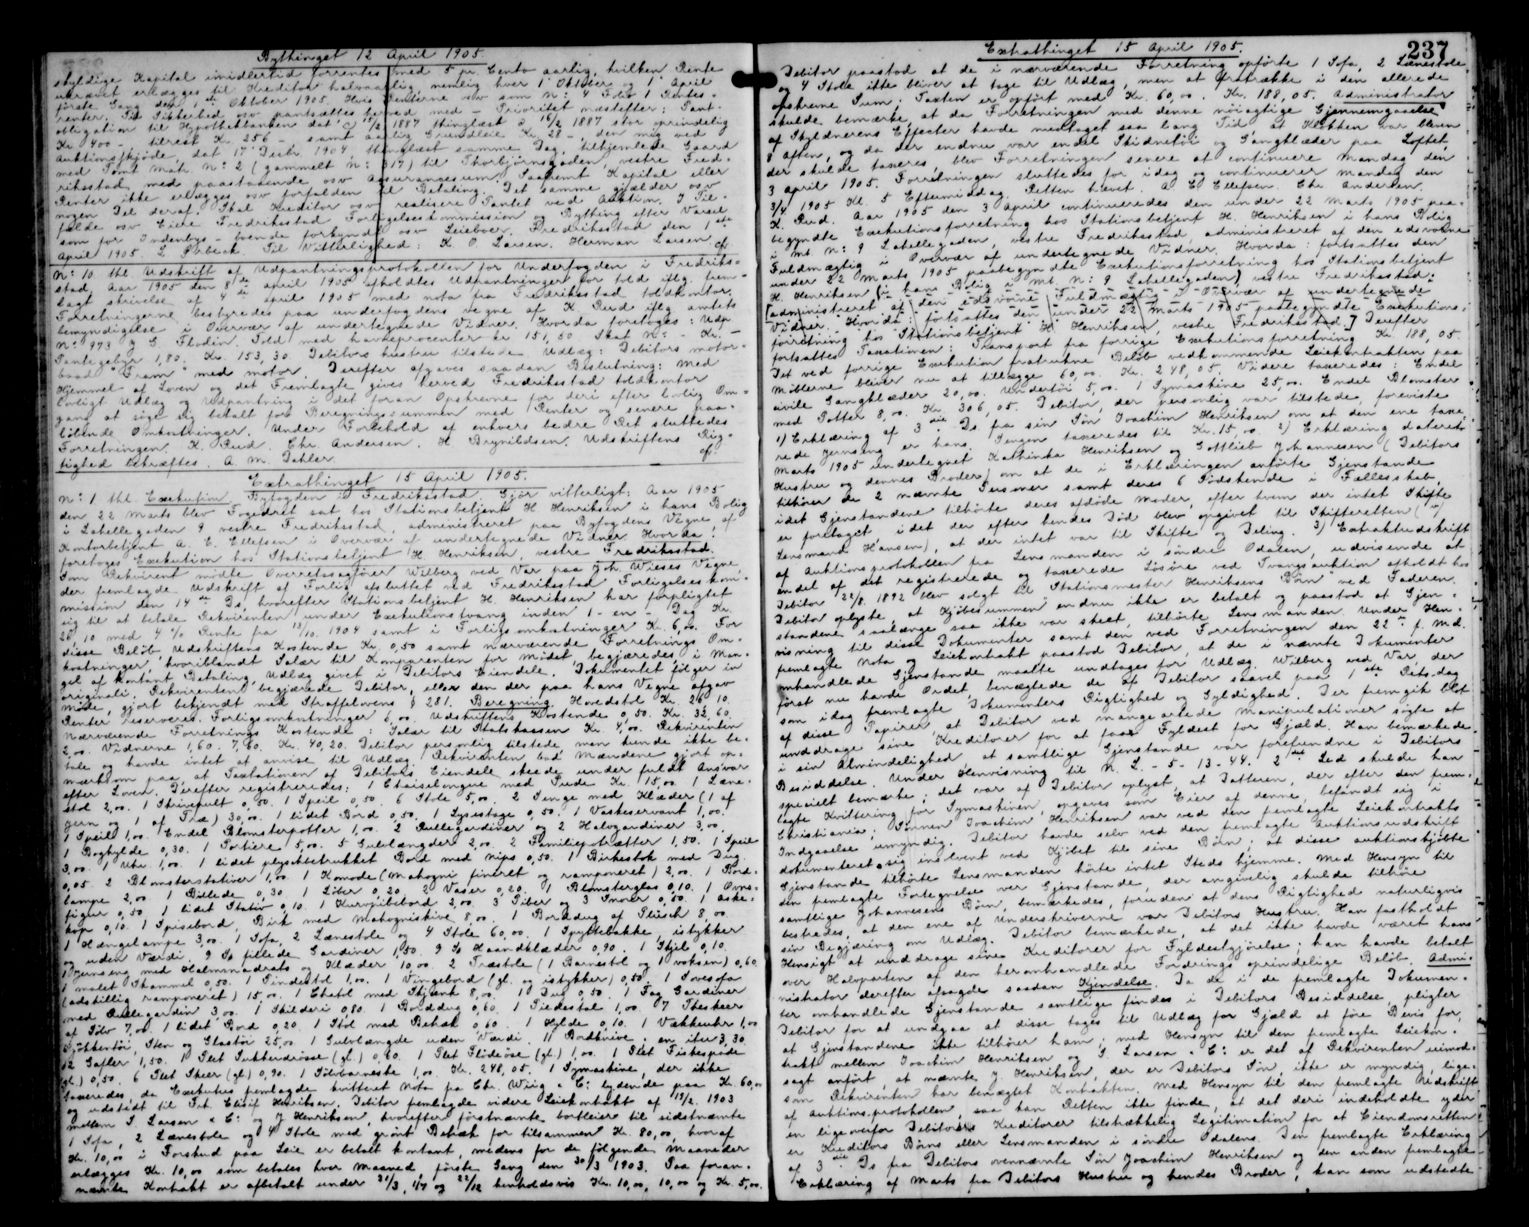 Bythinget 12 April 1905
skyldige Kapital imidlertid forrentes med 5 pr. Cento aarlig, hvilken Rente
ukrævet erlægges til Kreditor halvaarlig, nemlig hver 1 Oktober og 1 April
første Gang den 1ste Oktober 1905. Hvis Renterne osv som N: 4 Folio 1 Rentes-
renter. Til Sikkerhed osv pantsættes herved med Prioritet næstefter: Pant-
obligation til Hypothekbanken dat 12/2 1887 thinglæst d 16/2 1887 stor oprindelig
Kr 400 - tilrest Kr. 256 - samt aarlig Grundleie Kr. 28 -, den mig ved
Auktionsskjøde, dat. 17 Decbr 1904 thinglæst samme Dag, tilhjemlede Gaard
med Tomt Matr. N: 2 (gammelt N: 317) til Thorbjørnsgaden, vestre Fred-
riksstad, med paastaaende osv Assurancesum. Saafremt Kapital eller
Renter ikke erlægges osv forfalden til Betaling. Det samme gjælder osv
nogen Del deraf. Skal Kreditor osv realisere Pantet ved Auktion. I Til-
fælde osv Eidre Fredriksstad Forligelseskommission og Bything efter Varsel
som for Indenbys-boende forkyndt osv Leieboer. Fredriksstad den 1ste
April 1905. L Ørbeck. Til Vitterlighed: K O Larsen. Herman Larsen. of.
N: 10 thl. Udskrift af Udpantningsprotokollen for Underfogden i Fredriks-
stad, Aar 1905 den 8de april 1905 afholdtes Udpantninger for told iflg frem-
lagt skrivelse af 4de april 1905 med nota fra Fredriksstad toldkontor.
Forretningerne bestyredes paa underfogdens vegne af K. Ruud iflg amtets
bemyndigelse i Overvær af undertegnede Vidner. Hvorda foretoges: Udp.
N: 973 G. Flodin. Told med havneprocenter kr 151,50 Skat Kr. - Kr. -
Pantegebyr 1,80. Kr. 153,30. Debitors hustru tilstede. Udlæg: Debitors motor-
baad "Fram" med motor. Derefter afgaves saadan Beslutning: Med
Hjemmel af Loven og det Fremlagte gives herved Fredriksstad toldkontor
lovligt Udlæg og Udpantning i det foran Opskrevne for deri efter lovlig Om-
gang at søge sig betalt for Beregningssummen med Renter og senere paa-
løbende Omkostninger. Under Forbehold af enhvers bedre Ret sluttedes
Forretningen. K. Ruud. Chr. Andersen. H Brynildsen. Udskriftens Rig-
tighed bekræftes. A. M. Dahler. of.
Extrathinget 15 April 1905.
N: 1 thl. Exekution. Byfogden i Fredriksstad. Gjør vitterligt: Aar 1905
den 22 Marts blev Fogedret sat hos Stationsbetjent H Henriksen i hans Bolig
i Labellegaden 9 vestre Fredriksstad, administreret paa Byfogdens Vegne af
Kontorbetjent A. E. Ellefsen i Overvær af undertegnede Vidner. Hvorda:
foretoges Exekution hos Stationsbetjent H. Henriksen, vestre Fredriksstad.
Som Rekvirent mødte Overretssagfører Wilberg ved Var paa Joh. Wieses Vegne
der fremlagde Udskrift af Forlig afsluttet ved Fredriksstad Forligelseskom-
mission den 14de Ds, hvorefter Stationsbetjent H. Henriksen har forpligtet
sig til at betale Rekvirenten under Exekutionstvang inden 1-en-Dag Kr.
26,10 med 4% Rente fra 13/10. 1904 samt i Forligsomkostninger Kr. 6,00. For
disse Beløb, Udskriftens Kostende Kr. 0,50 samt nærværende Forretnings Om-
kostninger, hvoriblandt Salær til Komparenten for Mødet begjæredes i Man-
gel af kontant Betaling, Udlæg givet i Debitors Eiendele. Dokumentet følger in
originali. Rekvirenten begjærede Debitor, eller den der paa hans Vegne afgav
Møde, gjort bekjendt med Straffelovens § 281. Beregning. Hovedstol Kr. 26,10.
Renter reserveres. Forligsomkostninger 6,00. Udskriftens Kostende 0,50. Kr. 32,60.
Nærværende Forretnings Kostende: Salær til Statskassen Kr. 4,00. Rekvirenten
2,00. Vidnerne 1,60. 7,60. Kr. 40,20. Debitor personlig tilstede, men kunde ikke be-
tale og havde intet at anvise til Udlæg. Rekvirenten bad Mændene gjort op-
mærksom paa, at Taxationen af Debitors Eiendele skeede under fuldt Ansvar
efter Loven. Derefter registreredes: 1 Chaiselongue med Pude Kr. 15,00. 1 Læne-
stol 2,00. 1 Skrivepult 0,50. 1 Speil 0,50. 6 Stole 5,00. 2 Senge med Klæder (1 af
Jern og 1 af Træ) 30,00. 1 lidet Bord 0,50. 1 Lysestage 0,50. 1 Vaskeservant 1,00.
1 Speil 1,00. Endel Blomsterpotter 1,00. 2 Rullegardiner og 2 Halvgardiner 3,00.
1 Boghylde 0,30. 1 Portiere 5,00. 5 Gulvlængder 2,00. 2 Familieportrætter 1,50. 1 Speil
3,00. 1 Uhr. 1,00. 1 lidet plyschbetrukket Bord med nips 0,50. 1 Birkestok med Dug.
0,05. 2 Blomsterstativer 1,00. 1 Komode (Mahogni fineret og ramponeret) 2,00. 1 Bord-
lampe 2,00. 1 Billede 0,30. 1 Liber 0,20. 2 Vaser 0,20. 1 Blomsterglas 0,10. 1 Ovns-
figur 0,50. 1 lidet Stativ 0,10. 1 Kurvsybord 2,00. 3 Piber og 3 Snorer 0,60. 1 aske-
kop 0,10. 1 Spisebord, Birk med Mahogniskive 8,00. 1 Borddug af Plüsch 8,00.
1 Hængelampe 3,00. 1 Sofa, 2 Lænestole og 4 Stole 60,00. 1 Spyttebakke, istykker
og uden Værdi. 9 St fillede Gardiner 1,50. 9 St Haandklæder 0,90. 1 Speil 0,10.
1 Jernseng med Halmmadrats og Klæder 10,00. 2 Træstole (1 Barnestol og 1 voksen) 0,60.
1 malet Skammel 0,50. 1 Pindestol 1,00. 1 Vingebord (gl. og istykker) 0,50. 1 Sovesofa
(adskillig ramponeret) 15,00. 1 Etstol med Skjænk 8,00. 1 Dug 0,50. 1 Fag Gardiner
med Rullegardin 3,00. 1 Skilderi 0,50. 1 Borddug 0,60. 1 Piedestal 1,00. 7 Theskeer
af Sølv 7,00. 1 lidet Bord 0,20. 1 Stol med Betræk 0,60. 1 Hylde 0,10. 1 Vækkeuhr 1,00
Kjøkkentøi, Sten og Glastøi 25,00. 1 Gulvlængde uden Værdi. 11 Bordknive a en itu 3,30.
12 Gafler 1,50. 1 Plet Sukkerdaase (gl.) 0,60. 1 Plet Flødeøse (gl.) 1,00. 1 Plet Fiskespade
(gl.) 0,50. 6 Plet Skeer (gl.) 0,90. 1 Sølvbarneske 1,00. Kr. 248,05. 1 Symaskine, der ikke
taxeredes, da Exekutus fremlagde kvitteret Nota fra Chr. Wiig & Co: lydende paa Kr. 60,00
og udstedt til Frk. Elisif Henriksen. Debitor fremlagde videre Leiekontrakt af 13/2. 1903
mellem S. Larsen & Co og J Henriksen, hvorefter førstnævnte bortleier til sidstnævnte
1 Sofa, 2 Lænestole og 4 Stole med grønt Betræk for tilsammen Kr. 80,00, hvoraf
Kr. 10,00 i Forskud paa Leie er betalt kontant, medens for de følgende Maaneder
erlægges Kr. 10,00 som betales hver Maaned, første Gang den 30/3 1903. Paa foran-
nævnte Kontrakt er afbetalt under 31/3, 1/7 og 22/12 henholdsvis Kr. 10,00, 10,00 og Kr. 5,00.
Extrathinget 15 April 1905.
237
Debitor paastod at de i nærværende Forretning opførte 1 Sofa, 2 Lænestole
og 4 Stole ikke bliver at tage til Udlæg, men at fratrække i den allerede
opskrevne Sum; Taxten er opført med Kr. 60,00. Kr. 188,05. Administrator
skulde bemærke, at da Forretningen med denne nøiagtige Gjennemgaaelse
af Skyldnerens Effecter havde medtaget saa lang Tid, at Klokken var bleven
8 aften, og da der endnu var endel Skidnetøi og Gangklæder paa Loftet,
der skulde taxeres, blev Forretningen senere at continuere Mandag den
3 april 1905. Forretningen sluttedes for idag og continuerer mandag den
3/4 1905 Kl. 5 Eftermiddag. Retten hævet. A E Ellefsen. Chr Andersen.
K Ruud. Aar 1905 den 3 April continueredes den under 22 Marts 1905 paa-
begyndte Exekutionsforretning hos Stationsbetjent H. Henriksen i hans Bolig
i Mt. N: 9 Labellegaden, vestre Fredriksstad administreret af den edsvorne
Fuldmægtig i Overvær af undertegnede Vidner. Hvorda: fortsattes den
under 22 Marts 1905 paabegyndte Exekutionsforretning hos Stationsbetjent
H. Henriksen (i hans Bolig i Mt. N: 9 Labellegaden) vestre Fredriksstad.
[administreret af den edsvorne Fuldmægtig i Overvær af undertegnede
Vidner. Hvorda: fortsattes den under 22 Marts 1905 paabegyndte Exekutions-
forretning hos Stationsbetjent H Henriksen, vestre Fredriksstad.] Derefter
fortsattes Taxationen: Transport fra forrige Exekutionsforretning Kr. 188,05.
Det ved forrige Exekution fratrukne Beløb vedkommende Leiekontrakten paa
Møblerne bliver nu at tillægge 60,00. Kr. 248,05. Videre taxeredes: Endel
civile Gangklæder 20,00. Undertøi 5,00. 1 Symaskine 25,00. Endel Blomster
med Potter 8,00. Kr. 306,05. Debitor, der personlig var tilstede, foreviste
1) Erklæring af 3die Ds fra sin Søn Joachim Henriksen om at den ene taxe-
rede Jernseng er hans. Sengen taxeredes til Kr. 15,00. 2) Erklæring dateret
Marts 1905 undertegnet Kathinka Henriksen og Gottlieb Johannesen (Debitors
Hustru og dennes Broder) om at de i Erklæringen anførte Gjenstande
tilhører de 2 nævnte Personer samt deres 6 Søskende i Fællesskab,
idet Gjenstandene tilhørte deres afdøde Moder, efter hvem der intet Skifte
er foretaget, idet der efter hendes Død blev opgivet til Skifteretten (v/
Lensmand Hansen), at der intet var til Skifte og Deling. 3) Extraktudskrift
af Auktionsprotokollen fra Lensmanden i søndre Odalen, udvisende at
endel af det registrerede og taxerede Løsøre ved Tvangsauktion afholdt hos
Debitor 22/8. 1892 blev solgt til Stationsmester Henriksens Børn ved Faderen.
Debitor oplyste, at Kjøbesummen endnu ikke er betalt og paastod at Gjen-
standene saalænge saa ikke var skeet, tilhørte Lensmanden. Under Hen-
visning til disse Dokumenter samt den ved Forretningen den 22de f. Md.
fremlagte Nota og Leiekontrakt paastod Debitor, at de i nævnte Dokumenter
omhandlede Gjenstande maatte undtages for Udlæg. Wilberg ved Var der
først nu havde Ordet, benægtede de af Debitor saavel paa 1ste Retsdag
som idag fremlagte Dokumenters Rigtighed og Gyldighed. Der fremgik blot
af disse Papirer, at Debitor ved mangeartede Manipulationer søgte at
unddrage sine Kreditorer for at faae Fyldest for Gjæld. Han bemærkede
i sin Almindelighed at samtlige Gjenstande var forefundne i Debitors
Besiddelse. Under Henvisning til N. L. - 5 - 13 - 44. 2det Led skulde han
specielt bemærke: det var af Debitor oplyst, at Datteren, der efter den frem-
lagte Kvittering for Symaskinen, opgaves som Eier af denne, befandt sig i
Christiania; Sønnen Joachim Henriksen var ved den fremlagte Leiekontrakts
Indgaaelse umyndig; Debitor havde selv ved den fremlagte Auktionsudskrift
dokumenteret sig insolvent ved Kjøbet til sine Børn; at disse auktionskjøbte
Gjenstande tilhørte Lensmanden hørte intet Steds hjemme. Med Hensyn til
den fremlagte Fortegnelse over Gjenstande, der angivelig skulde tilhøre
samtlige Johannesens Børn, bemærkedes, foruden at dens Rigtighed naturligvis
bestredes, at den ene af Underskriverne var Debitors Hustru. Han fastholdt
sin Begjæring om Udlæg. Debitor bemærkede, at det ikke havde været hans
Hensigt at unddrage sine Kreditorer for Fyldestgjørelse; han havde betalt
over Halvparten af den heromhandlede Fordrings oprindelige Beløb. Admi-
nistrator derefter afsagde saadan Kjendelse. Da de i de fremlagte Dokumen-
ter omhandlede Gjenstande samtlige findes i Debitors Besiddelse, pligter
Debitor for at undgaa at disse tages til Udlæg for Gjæld at føre Bevis for,
at Gjenstandene ikke tilhører ham; med Hensyn til den fremlagte Leiekon-
trakt mellem Joachim Henriksen og S. Larsen & Co: er det af Rekvirenten uimod-
sagt anført, at nævnte J Henriksen, der er Debitors Søn, ikke er myndig, lige-
som Rekvirenten har benægtet Kontrakten. Med Hensyn til den fremlagte Udskrift
af Auktionsprotokollen, saa kan Retten ikke finde, at det deri indeholdte yder
en ligeoverfor Debitors Kreditorer tilstrækkelig Legitimation for at Eiendomsretten
er Kreditors Børns eller Lensmanden i søndre Odalens. Den fremlagte Erklæring
af 3die Ds fra Debitors ovennævnte Søn Joachim Henriksen og den anden fremlagte
Erklæring af Marts fra Debitors Hustru og hendes Broder, kan som udstedte